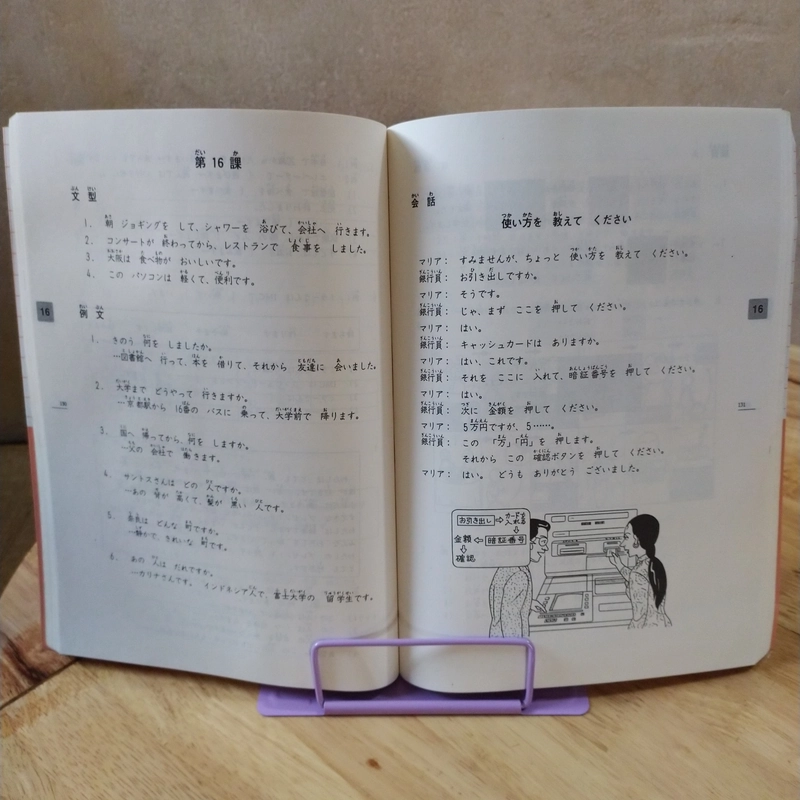 第16課
文型
1. 朝 ジョギングを して、シャワーを 浴びて、会社へ 行きます。
2. コンサートが 終わってから、レストランで 食事を しました。
3. 大阪は 食べ物が おいしいです。
4. この パソコンは 軽くて、便利です。
16
例文
1. きのう 何を しましたか。
…図書館へ 行って、本を 借りて、それから 友達に 会いました。
2. 大学まで どうやって 行きますか。
…京都駅から 16番の バスに 乗って、大学前で 降ります。
3. 国へ 帰ってから、何を しますか。
…父の 会社で 働きます。
4. サントスさんは どの 人ですか。
…あの 背が 高くて、髪が 黒い 人です。
5. 奈良は どんな 町ですか。
…静かで、きれいな 町です。
6. あの 人は だれですか。
…カリナさんです。 インドネシア人で、富士大学の 留学生です。
会話
使い方を 教えて ください
マリア： すみませんが、ちょっと 使い方を 教えて ください。
銀行員： お引き出しですか。
マリア： そうです。
銀行員： じゃ、まず ここを 押して ください。
マリア： はい。
銀行員： キャッシュカードは ありますか。
マリア： はい、これです。
銀行員： それを ここに 入れて、暗証番号を 押して ください。
マリア： はい。
銀行員： 次に 金額を 押して ください。
マリア： 5万円ですが、5……。
銀行員： この 「万」「円」を 押します。
それから この 確認ボタンを 押して ください。
マリア： はい。 どうも ありがとう ございました。
16
お引き出し⇨カードを入れる
金額⇦暗証番号
確認